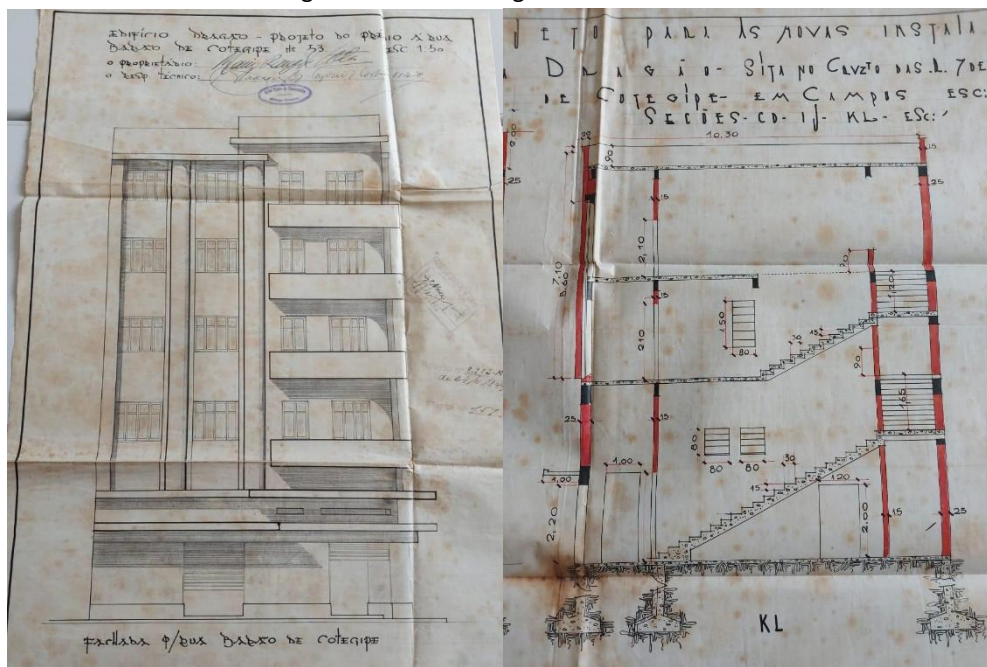 EDIFÍCIO DRAGÃO - PROJETO DO PRÉDIO A RUA
BARÃO DE COTEGIPE # 53 ESC 1:50
O PROPRIETÁRIO:
O RESP. TÉCNICO:
FACHADA P/RUA BARÃO DE COTEGIPE
JETO PARA AS NOVAS INSTALA
A DRAGÃO - SITA NO CRUZTO DAS R. 7 DE
DE COTEGIPE - EM CAMPOS ESC:
SECÕES - CD - IJ - KL - ESC:
10,30
15
90
25
25
15
2,10
7,10
8,60
70
1,20
1,50
80
210
15
30
90
1,65
25
15
80
80
80
30
1,00
1,00
15
120
2,20
2,00
15
25
KL